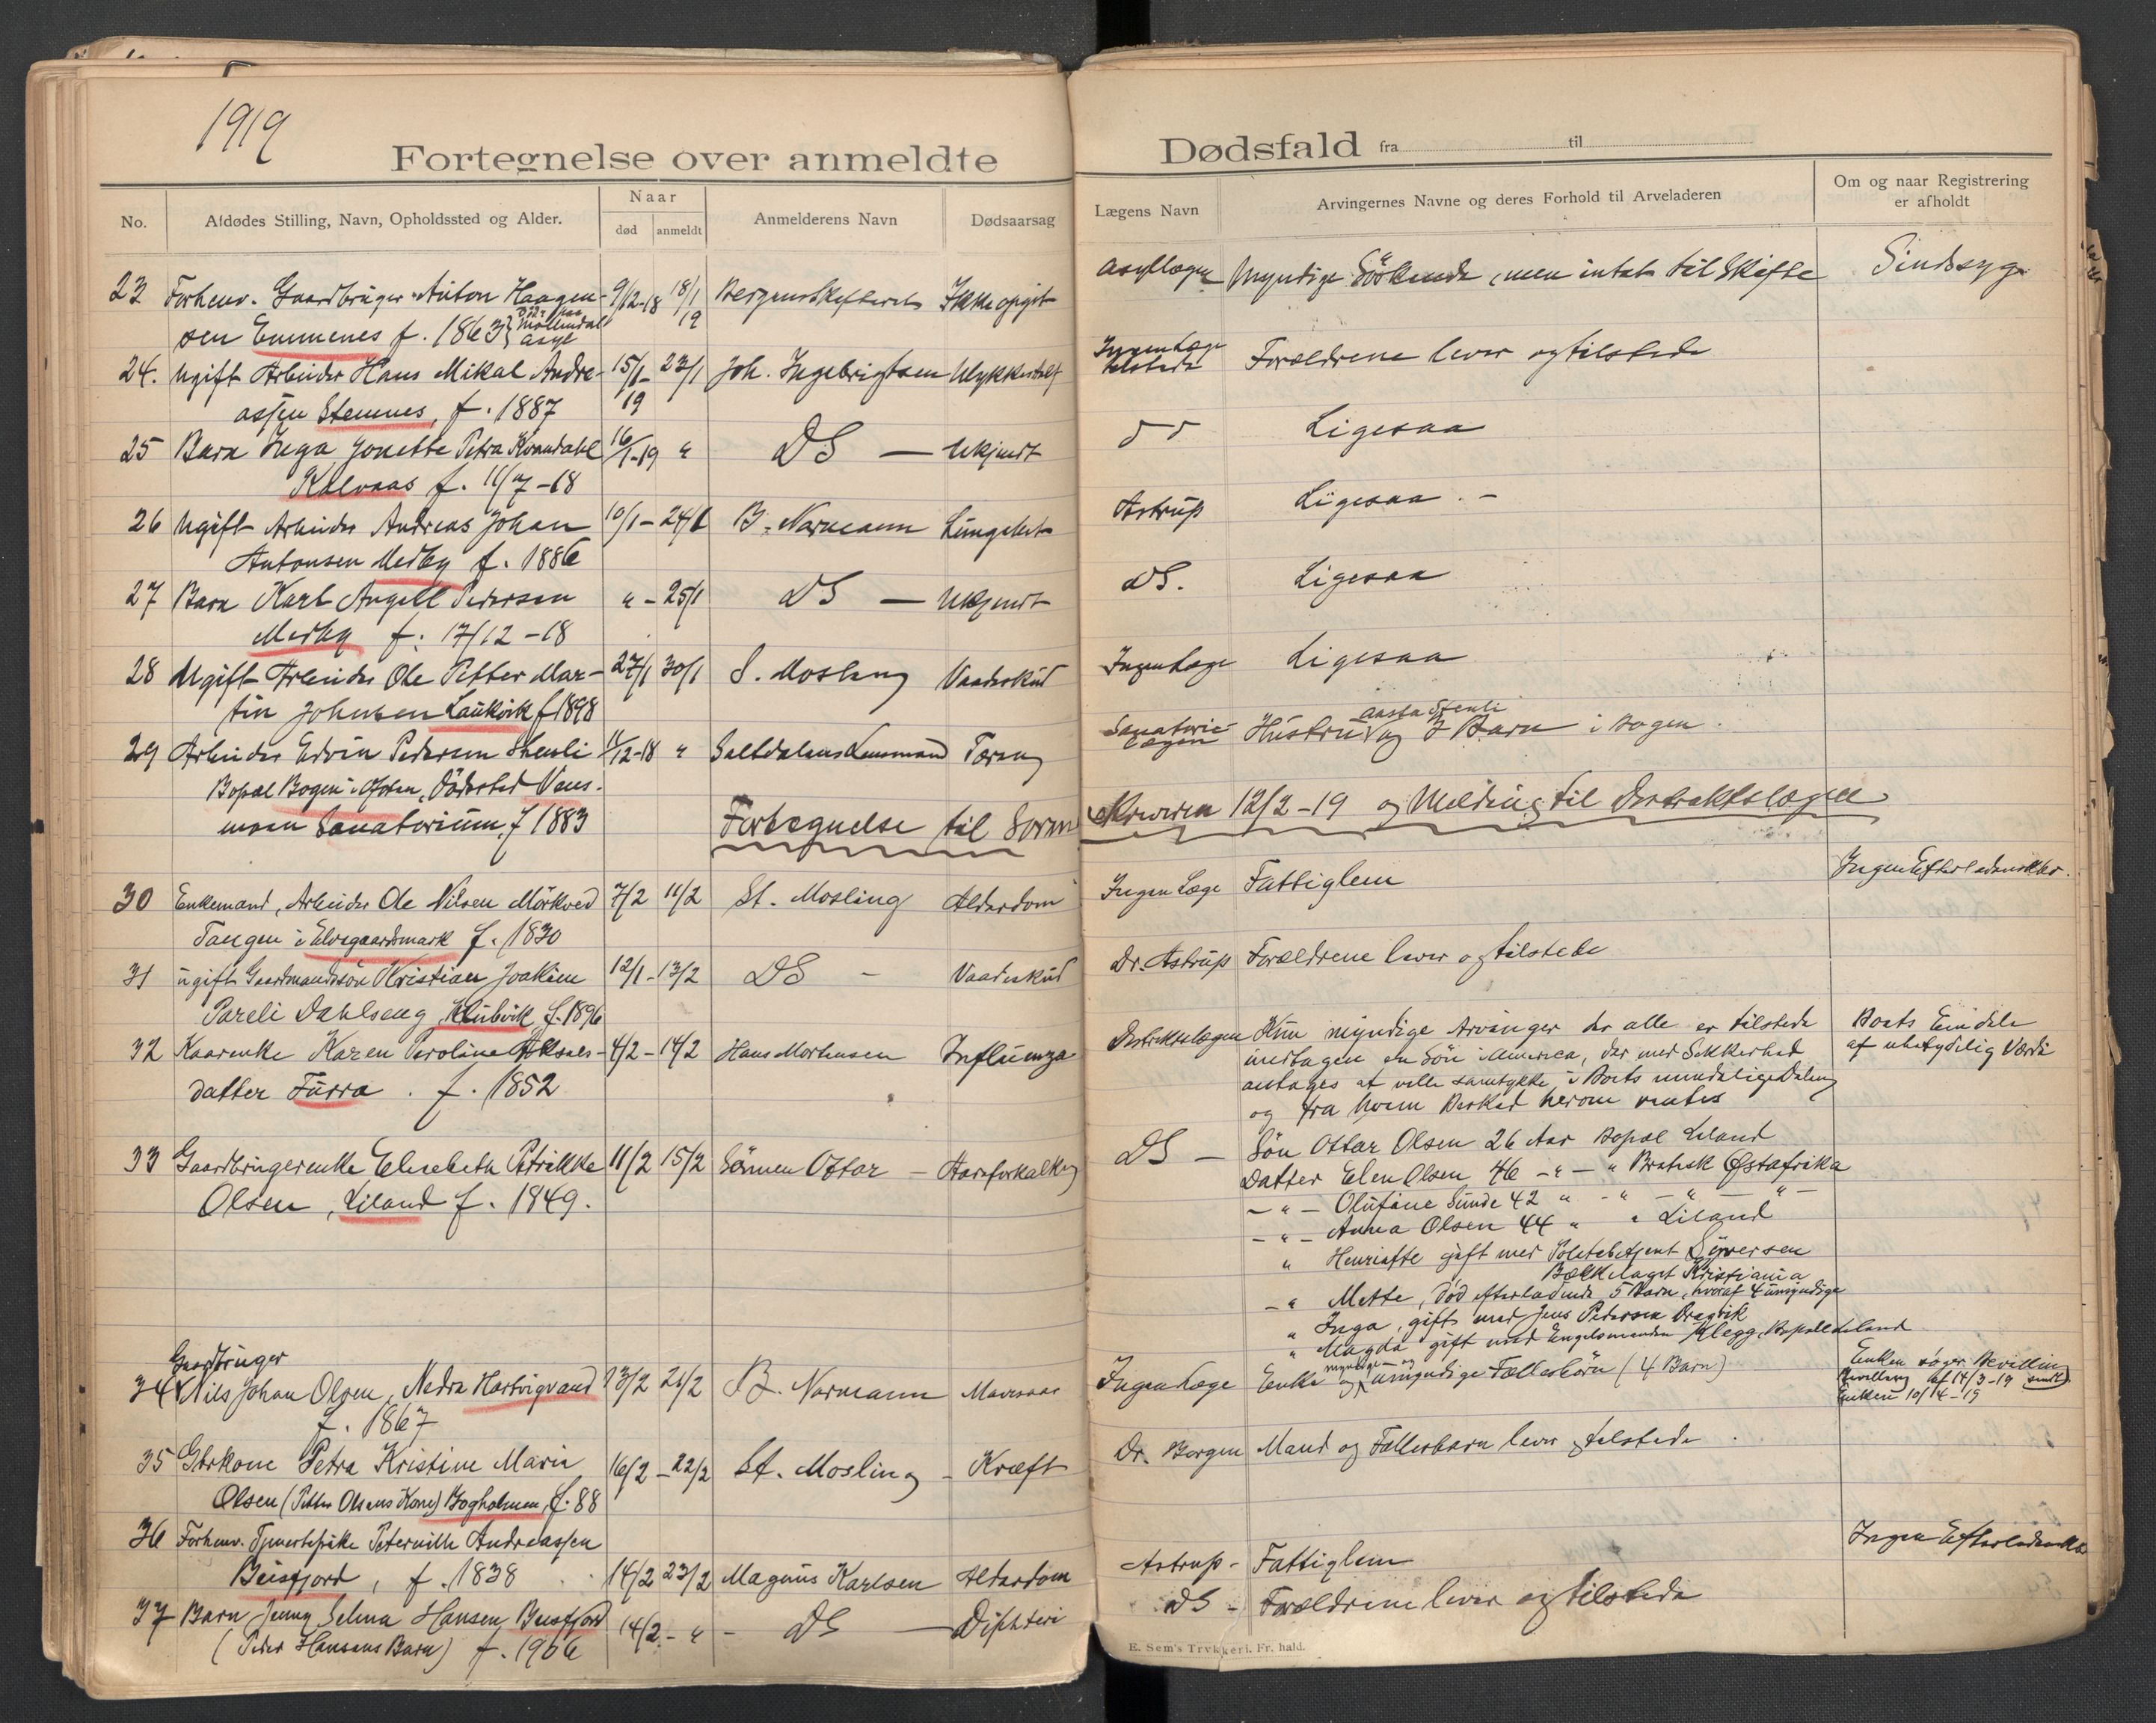 1919
Fortegnelse over anmeldte Dødsfald fra til
No.
Afdødes Stilling, Navn, Opholdssted og Alder.
Naar
død
anmeldt
Anmelderens Navn
Dødsaarsag
Lægens Navn
Arvingernes Navne og deres Forhold til Arveladeren
Om og naar Registrering
er afholdt
23 Forhenv. Gaardbruger Anton Haagen- 9/12-18 18/1 Bergens Skifteret Ikke opgit
sen Emmenes f. 1863 Möllendal 19
Asyl
Asyllægen Myndige Söskende, men intet til Skifte Sindssyg
24. Ugift Arbeider Hans Mikal Andre- 15/1- 23/1 Joh. Ingebrigtsen Ulykkestilf
assen Stemnes, f. 1887 19
Ingen Læge
tilstede Forældrene lever og tilstede
25 Barn Inga Jonette Petra Kvandahl 16/1-19 " DS — Ukjendt
Kalvaas f. 11/7-18
Ligesaa
26 Ugift Arbeider Andreas Johan 10/1 - 24/1 B. Normann Lungebet
Antonsen Medby f. 1886
Astrup Ligesaa. -
27 Barn Karl Angell Pedersen " - 25/1 DS — Ukjendt
Medby f. 17/12-18
DS. Ligesaa
28 Ugift Arbeider Ole Petter Mar- 27/1 30/1 S. Mosling Vaadeskud
tin Johnsen Laukvik f 1898
Ingen Læge Ligesaa
29 Arbeider Edvin Pedersen Stenli 11/12-18 " Saltdalens Lensmand Tæring
Bopæl Bogen i Ofoten, Dödssted Vens-
moen Sanatorium, f 1883
Sanatorie-
lægen Hustru og Barn i Bogen.
Fortegnelse til Soren-
skriveren 12/2-19 og Melding til Distriktslægen
30 Enkemand, Arbeider Ole Nilsen Mörkved 7/2 11/2 St. Mosling Alderdom
Tangen i Elvegaardsmark f. 1830
Ingen Læge Fattiglem Ingen Efterladenskber.
31 ugift Gaardmandssön Kristian Joakim 12/1 - 13/2 DS - Vaadeskud
Pareli Dahlseng, Klubvik f. 1896
Dr. Astrup Forældrene lever og tilstede
32 Kaarenke Karen Peroline Aksels- 4/2 - 14/2 Hans Mortensen Influenza
datter Furra. f. 1852
Distriktslægen Kun myndige Arvinger der alle er tilstede Boets Eiendele
undtagen en Sön i America, der med Sikkerhed af ubetydelig Værdi
antages at ville samtykke i Boets mindelige Deling
og fra hvem Besked herom ventes
33 Gaardbrugerenke Elisebeth Petrikke 11/2 15/2 Sönnen Ottar - Aareforkalkng
Olsen, Liland f. 1849.
DS - Sön Ottar Olsen 26 Aar Bopæl Liland
Datter Elen Olsen 46 - " - " Britisk Østafrika
- " - Olufine Sunde 42 " - " - " - " -
- " - Anna Olsen 44 " " Liland
" Henriette gift med Politibetjent Syversen
Bækkelaget Kristiania
- " Mette, död efterladende 5 Barn, hvoraf 4 umyndige
" Inga, gift med Jens Pedersen Dragvik
" Magda gift med Engelsmanden Klegg, Bopæl Liland
Gaardbruger
34 Nils Johan Olsen, Nedre Hartvigvand 13/2 21/2 B. Normann Mavesaar
f. 1867
Ingen Læge Enke og myndige og umyndige Fællesbörn (4 Barn) Enken söger Bevilling
Bevilling af 14/3-19 sendt
Enken 10/4-19
35 Gbrkone Petra Kristine Marie 16/2 - 22/2 St. Mosling - Kræft
Olsen (Petter Olsens Kone) Bogholmen, f. 88
Dr. Borgen Mand og Fællesbarn lever og tilstede.
36 Forhenv. Tjenestepike Peternille Andreassen
Beisfjord, f. 1838 14/2 23/2 Magnus Karlsen Alderdom
Astrup - Fattiglem Ingen Efterladensk
37 Barn Jenny Selma Hansen, Beisfjord 14/2 - " - DS — Difhteri
(Peder Hansens Barn) f. 1906
DS - Forældrene lever og tilstede
E. Sem's Trykkeri, Fr. hald.